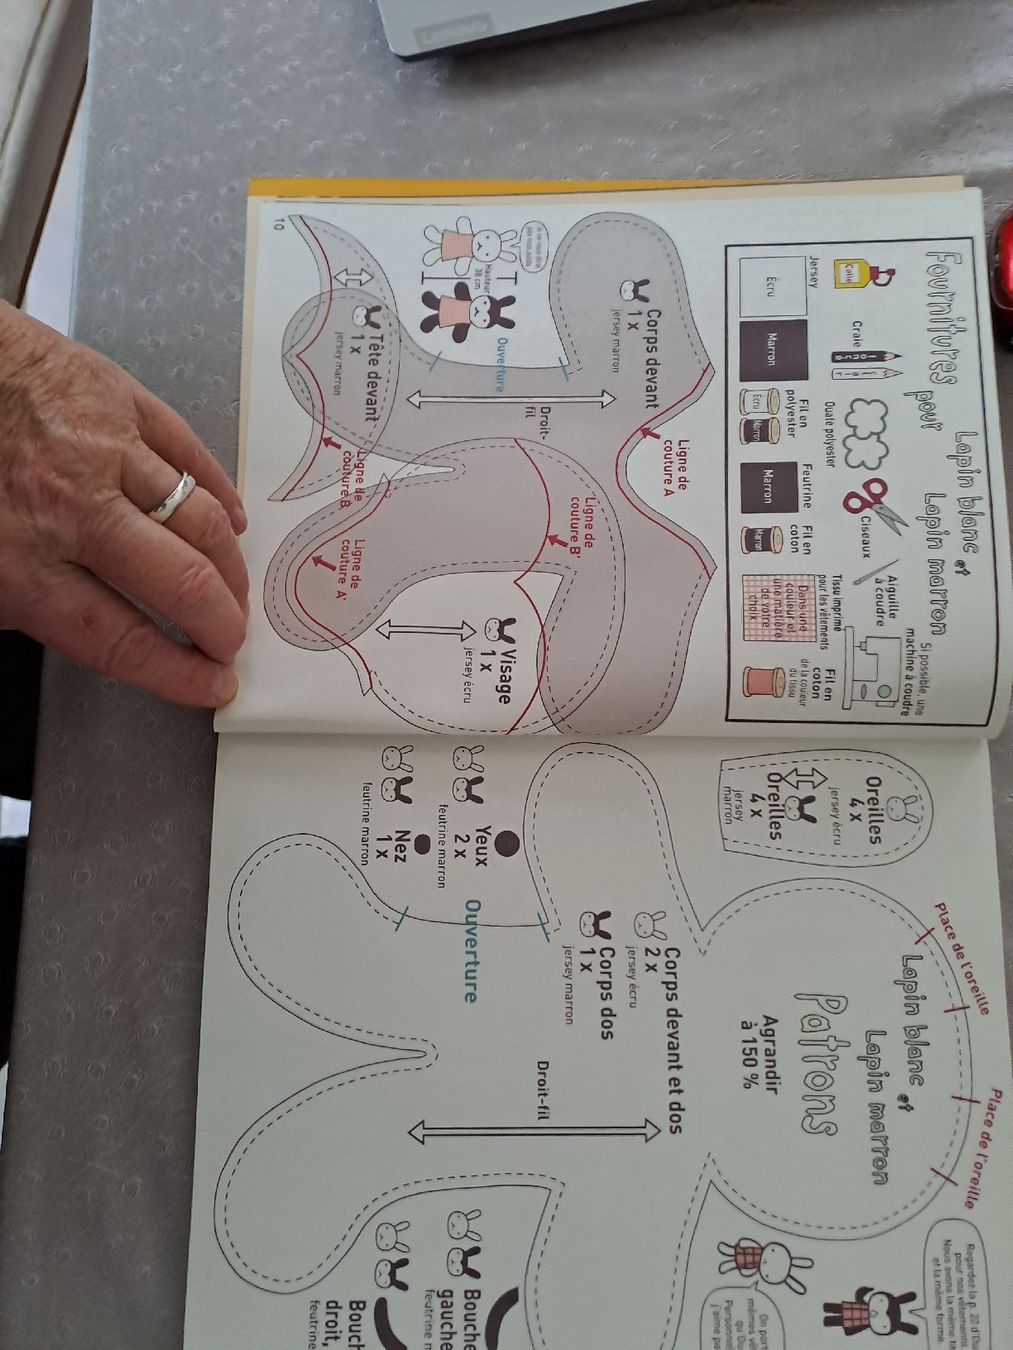 Fournitures pour
Lapin blanc et
Lapin marron
Colle
Craie
Ouate polyester
Ciseaux
Aiguille
à coudre
Si possible, une
machine à coudre
Jersey
Écru
Marron
Fil en
polyester
Écru
Marron
Feutrine
Marron
Fil en
coton
Marron
Tissu imprimé
pour les vêtements
Dans une
couleur et
une matière
de votre
choix
Fil en
coton
de la couleur
du tissu
Corps devant
1 x
jersey marron
Ligne de
couture A
Hauteur
38 cm
Ouverture
Droit-
fil
Tête devant
1 x
jersey marron
Ligne de
couture B
Ligne de
couture B'
Ligne de
couture A'
Visage
1 x
jersey écru
10
Oreilles
4 x
jersey écru
Oreilles
4 x
jersey
marron
Place de l'oreille
Place de l'oreille
Lapin blanc et
Lapin marron
Patrons
Agrandir
à 150 %
Corps devant et dos
2 x
jersey écru
Corps dos
1 x
jersey marron
Droit-fil
Yeux
2 x
feutrine marron
Nez
1 x
feutrine marron
Ouverture
Bouche
gauche
feutrine
droit,
feutrine
Regardez la p.
pour nos vêtements.
Nous avons la même
et la même forme.
On port
mêmes
Personnel
j'aime